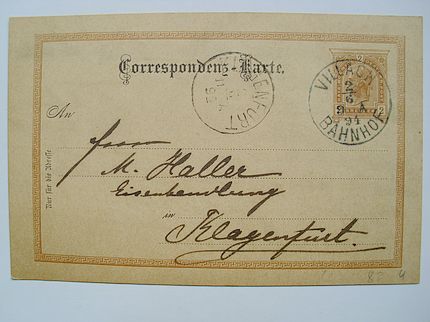 Correspondenz-Karte.
KLAGENFURT
2
2
VILLACH
2/6
94
BAHNHOF
An
Herrn
M. Haller
Eisenhandlung
in
Klagenfurt.
Nur für die Adresse.